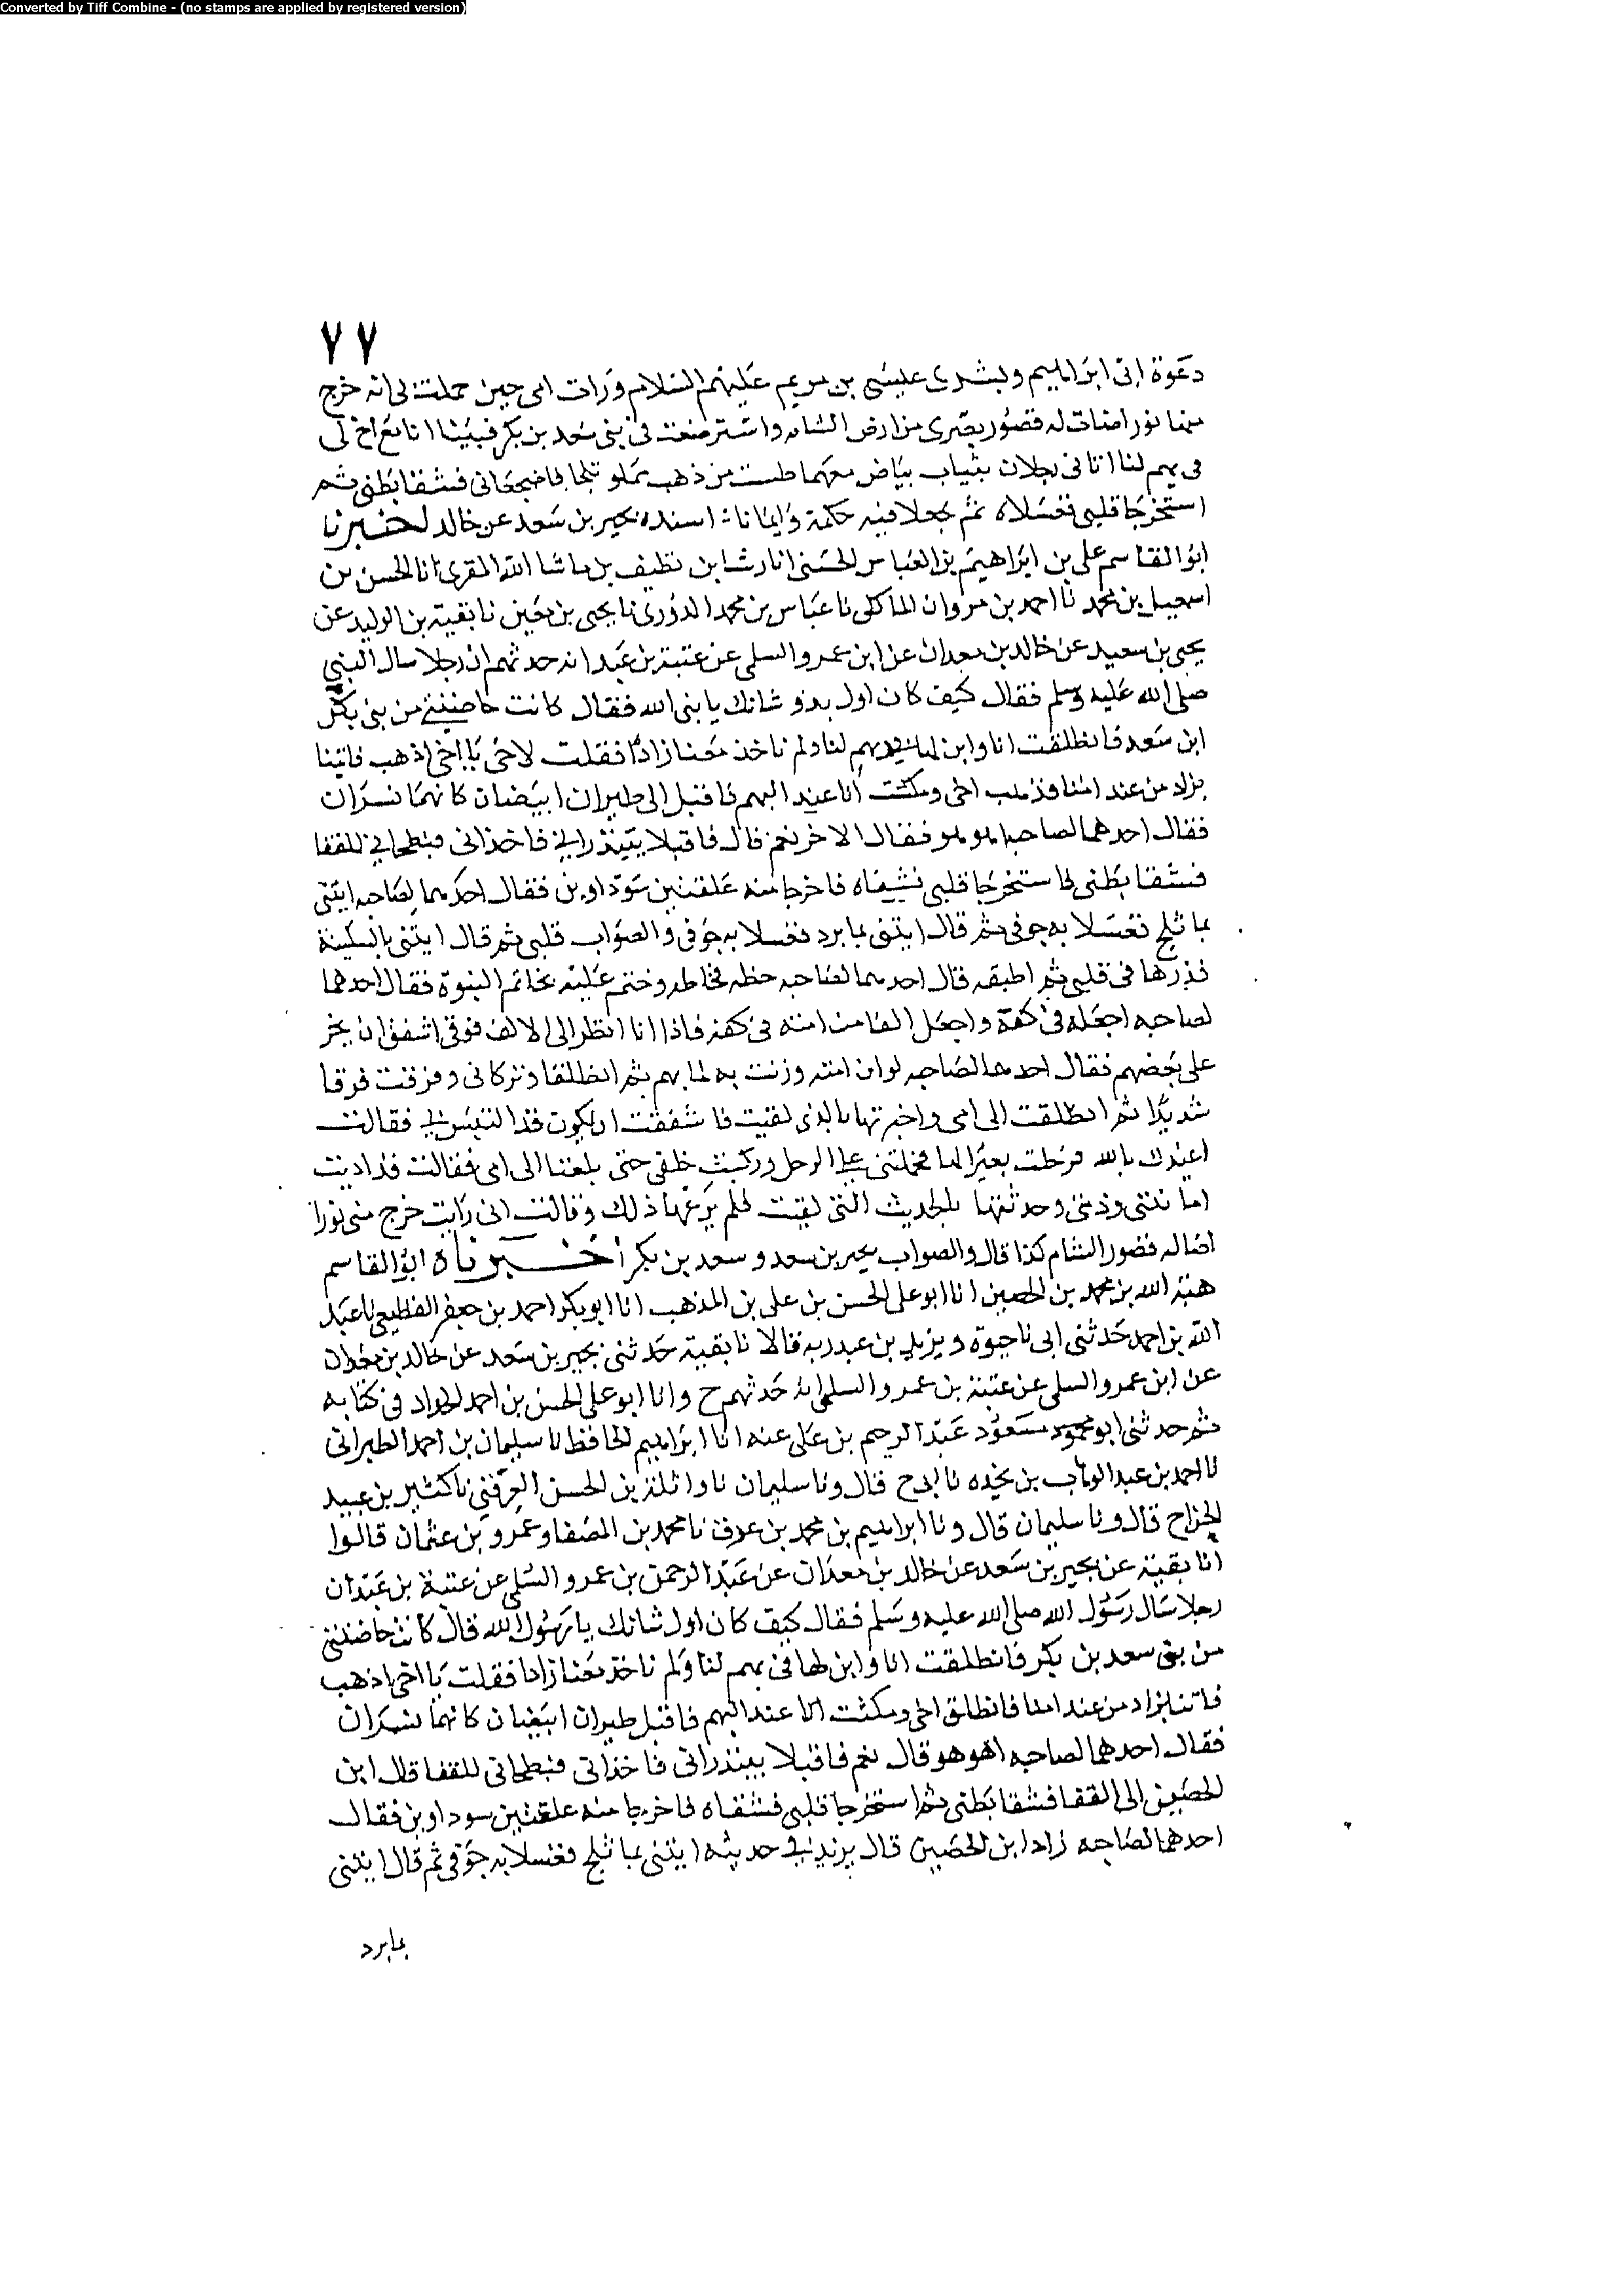 Converted by Tiff Combine - (no stamps are applied by registered version)
٧٧
دعوة ابى ابراهيم وبشرى عيسى بن مريم عليهم السلام ورات امى حين حملت بى انه خرج
منها نور اضات له قصور بصرى من ارض الشام واسترضعت فى بنى سعد بن بكر فبينا انا مع اخ لى
فى بهم لنا اتانى رجلان بثياب بياض معهما طست من ذهب مملو ثلجا فاضجعانى فشقا بطنى ثم
استخرجا قلبى فغسلاه ثم جعلا فيه حكمة وايمانا اسنده بحير بن سعد عن خالد اخبرنا
ابو القاسم على بن ابراهيم بن العباس الحسنى انا رشا بن نظيف بن ما شا الله المقرى انا الحسن بن
اسمعيل بن محمد نا احمد بن مروان المالكى نا عباس بن محمد الدورى نا يحيى بن معين نا بقية بن الوليد عن
يحيى بن سعيد عن خالد بن معدان عن ابن عمرو السلمى عن عتبة بن عبد انه حدثهم ان رجلا سال النبى
صلى الله عليه وسلم فقال كيف كان اول بدو شانك يا نبى الله فقال كانت حاضنتى من بنى بكر
ابن سعد فانطلقت انا وابن لها فى بهم لنا ولم ناخذ معنا زادا فقلت لاخى يا اخى اذهب فاتينا
بزاد من عند امنا فذهب اخى ومكثت انا عند البهم فاقبل الى طيران ابيضان كانهما نسران
فقال احدهما لصاحبه اهو هو فقال الاخر نعم قال فاقبلا يبتذرانى فاخذانى فبطحانى للقفا
فشقا بطنى فاستخرجا قلبى فشقاه فاخرجا منه علقتين سوداوين فقال احدهما لصاحبه ايتنى
بما ثلج فغسلا به جوفى ثم قال ايتنى بما برد فغسلا به جوفى والصواب قلبى ثم قال ايتنى بالسكينة
فذرها فى قلبى ثم اطبقه قال احدهما لصاحبه حطه فخاطه وختم عليه بخاتم النبوة فقال احدهما
لصاحبه اجعله فى كفة واجعل الفا من امته فى كفة فاذا انا انظر الى الالف فوقى اشفق ان يخر
على بعضهم فقال احدهما لصاحبه لو ان امته وزنت به لمال بهم ثم انطلقا وتركانى وفرقت فرقا
شديدا ثم انطلقت الى امى واخبرتها بالذى لقيت فاشفقت ان يكون قد التبس بى فقالت
اعيذك بالله فرحلت بعيرا لها فحملتنى على الرحل وركبت خلفى حتى بلغنا الى امى فقالت قد اديت
امانتى وذمتى وحدثتها بالحديث التى لقيت فلم يرعها ذلك وقالت انى رايت خرج منى نورا
اضا له قصور الشام كذا قال والصواب بحير بن سعد وسعد بن بكر اخبرناه ابو القاسم
هبة الله بن محمد بن الحصين انا ابو على الحسن بن على بن المذهب انا ابو بكر احمد بن جعفر القطيعى نا عبد
الله بن احمد حدثنى ابى نا حيوة ويزيد بن عبد ربه قالا نا بقية حدثنى بحير بن سعد عن خالد بن معدان
عن ابن عمرو السلمى عن عتبة بن عمرو السلمى انه حدثهم ح وانا ابو على الحسن بن احمد الحداد فى كتابه
ثم حدثنى ابو مسعود عبد الرحيم بن على عنه انا ابراهيم الحافظ نا سليمان بن احمد الطبرانى
نا احمد بن عبد الوهاب بن نجده نا ابى ح قال ونا سليمان نا واثلة بن الحسن العرقى نا كثير بن عبيد
الحزاح قال ونا سليمان قال ونا ابراهيم بن محمد بن عرق نا محمد بن المصفا وعمرو بن عثمان قالوا
انا بقية عن بحير بن سعد عن خالد بن معدان عن عبد الرحمن بن عمرو السلمى عن عتبة بن عبد ان
رجلا سال رسول الله صلى الله عليه وسلم فقال كيف كان اول شانك يا رسول الله قال كانت حاضنتى
من بنى سعد بن بكر فانطلقت انا وابن لها فى بهم لنا ولم ناخذ معنا زادا فقلت يا اخى اذهب
فاتنا بزاد من عند امنا فانطلق اخى ومكثت انا عند البهم فاقبل طيران ابيضان كانهما نسران
فقال احدهما لصاحبه اهو هو قال نعم فاقبلا يبتذرانى فاخذانى فبطحانى للقفا قال ابن
الحصين الى القفا فشقا بطنى ثم استخرجا قلبى فشقاه فاخرجا منه علقتين سوداوين فقال
احدهما لصاحبه زاد ابن الحصين قال يزيد فى حديثه ايتنى بما ثلج فغسلا به جوفى ثم قال ايتنى
بما برد